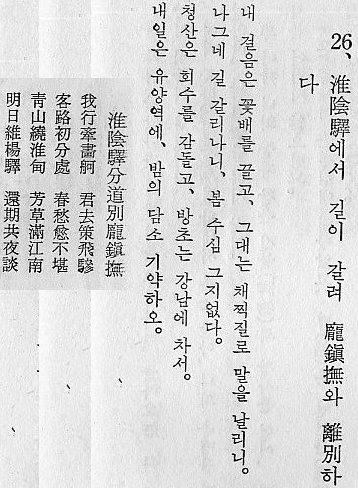 26、淮陰驛에서 길이 갈려 龐鎭撫와 離別하
다
내 걸음은 꽃배를 끌고、그대는 채찍질로 말을 날리니。
나그네 길 갈리나니、봄 수심 그지없다。
청산은 회수를 감돌고、방초는 강남에 차서。
내일은 유양역에、밤의 담소 기약하오。
淮陰驛分道別龐鎭撫
我行牽畵舸 君去策飛驂
客路初分處 春愁愈不堪
靑山繞淮甸 芳草滿江南
明日維楊驛 還期共夜談